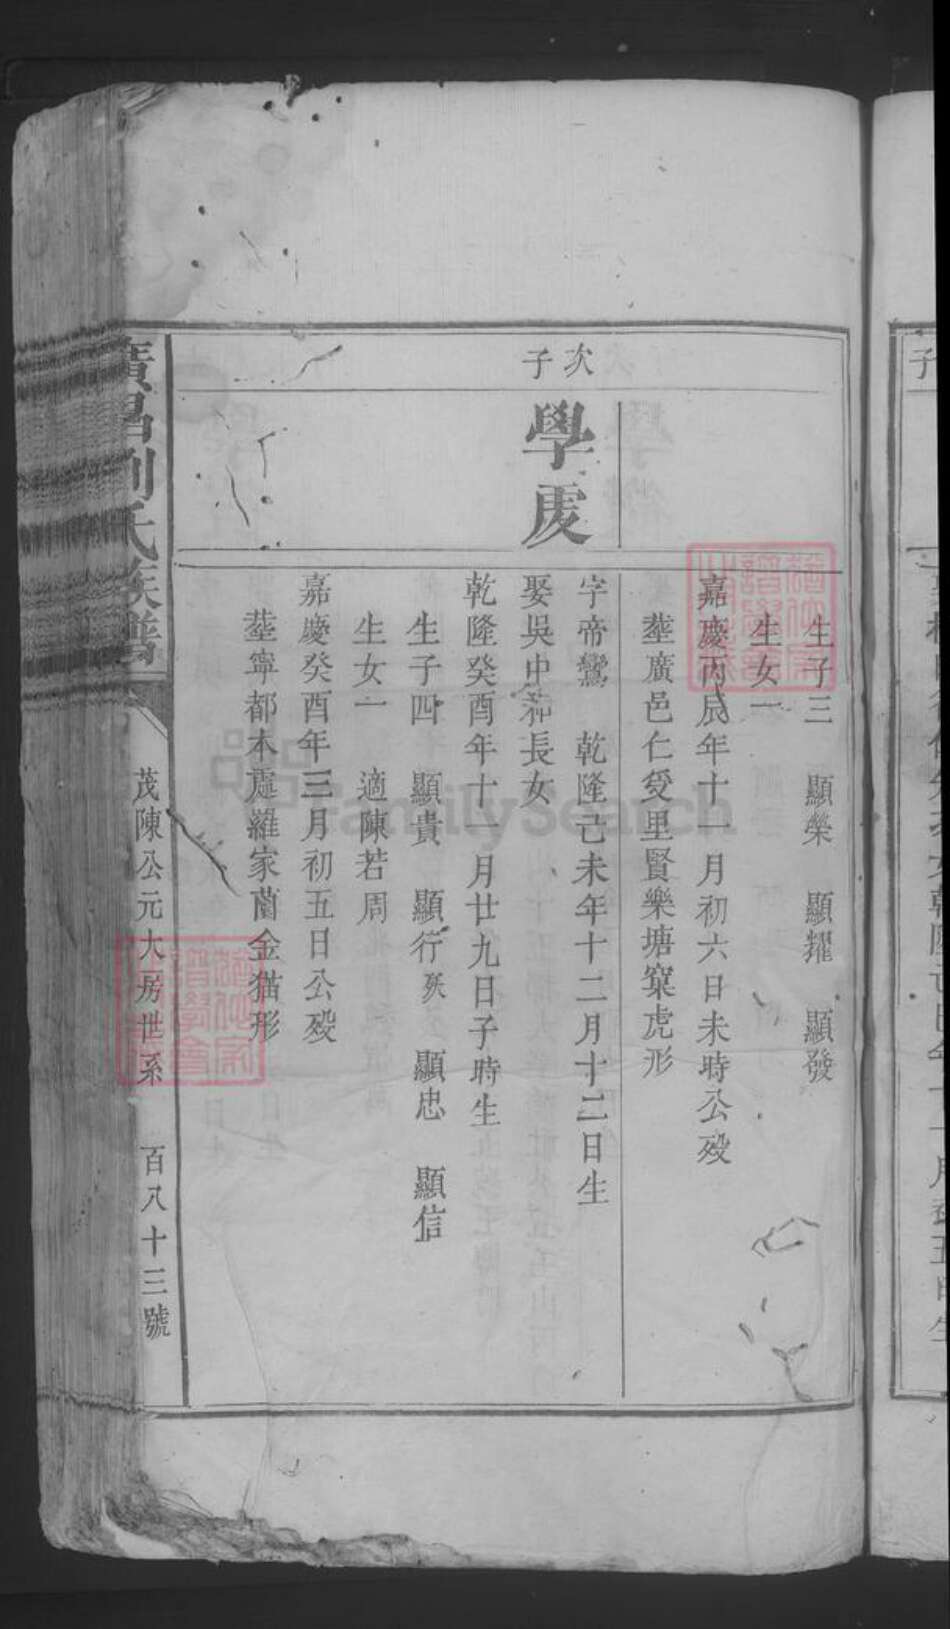 生子三 顯榮 顯耀 顯發
生女一
嘉慶丙辰年十一月初六日未時公歿
塟廣邑仁受里賢樂塘窠虎形
次子
學虔
字帝鸞 乾隆己未年十二月十二日生
娶吳中和長女
乾隆癸酉年十一月廿九日子時生
生子四 顯貴 顯行殀 顯忠 顯信
生女一 適陳若周
嘉慶癸酉年三月初五日公歿
塟寧都本處羅家蘭金猫形
廣昌劉氏族譜
茂陳公元大房世系
百八十三號
FamilySearch